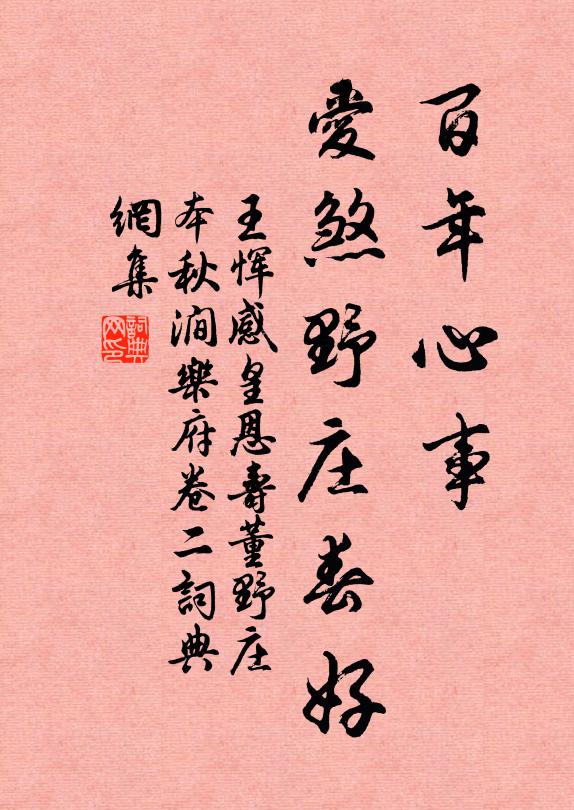 百年心事
愛煞野庄春好
王惲感皇恩壽董野庄
本秋澗樂府卷二詞典
網集
詞典
网印